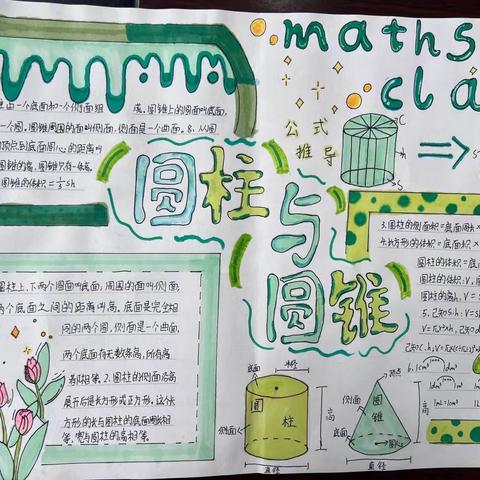 maths
cla
是由一个底面和一个侧面组成。圆锥上的圆面叫底面,
一个圆。圆锥周围的面叫侧面,侧面是一个曲面。8、从圆
顶点到底面圆心的距离叫
圆锥的高,圆锥只有一条高。
圆锥的体积=⅓sh
公式
推导
C
h
S
圆柱
与
圆锥
3.圆柱的侧面积=底面周长×
4.长方形的体积=底面积×
圆柱的体积=底
圆柱的体积:V,底
圆柱的高h,V=S
5.已知S.h:V=sh
圆柱上、下两个圆面叫底面,周围的面叫侧面,
两个底面之间的距离叫高。底面是完全相
同的两个圆,侧面是一个曲面,
两个底面有无数条高,所有高
都相等。2、圆柱的侧面沿高
展开后是长方形或正方形,这个长
方形的长与圆柱的底面周长相
等,宽与圆柱的高相等。
底面
半径
圆
柱
侧面
高
直径
顶点
侧面
圆
锥
高
底面
圆心
直径